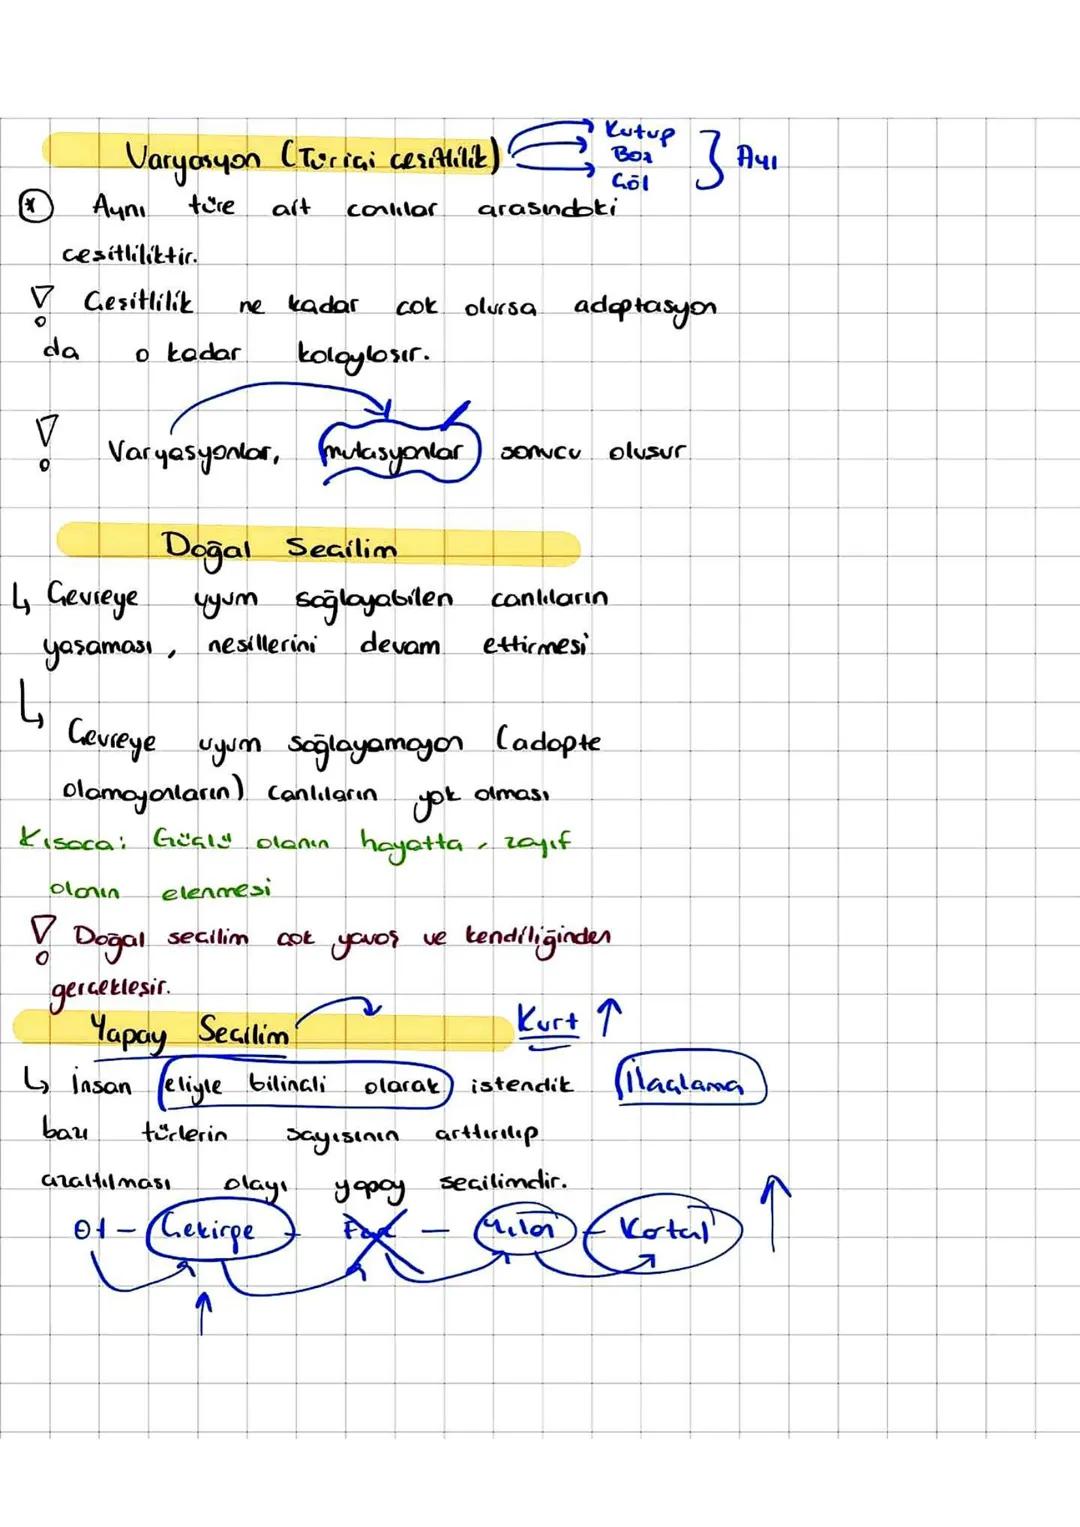 Varyasyon (Türiçi çeşitlilik) Kutup
Boz
Göl
Ayı
* Aynı türe ait canlılar arasındaki
çeşitliliktir.
Çeşitlilik ne kadar çok olursa adaptasyon
da o kadar kolaylaşır.
Varyasyonlar, mutasyonlar sonucu oluşur
Doğal Seçilim
↳ Çevreye uyum sağlayabilen canlıların
yaşaması, nesillerini devam ettirmesi
↳ Çevreye uyum sağlayamayan (adapte
olamayanların) canlıların yok olması
Kısaca: Güçlü olanın hayatta, zayıf
olanın elenmesi
Doğal seçilim çok yavaş ve kendiliğinden
gerçekleşir.
Yapay Seçilim Kurt ↑
↳ İnsan eliyle bilinçli olarak istendik İlaçlama
bazı türlerin sayısının arttırılıp
azaltılması olayı yapay seçilimdir.
Ot - Çekirge - - Yılan - Kartal ↑